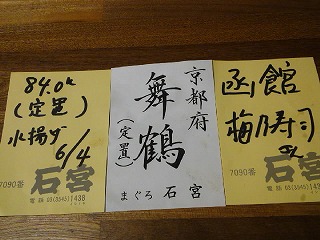 84.0k
(定置)
水揚げ
6/4
7090番
石宮
電話 03(3545)1438
京都府
舞鶴
(定置)
まぐろ 石宮
函館
梅乃寿司
7090番
石宮
電話 03(3545)1438